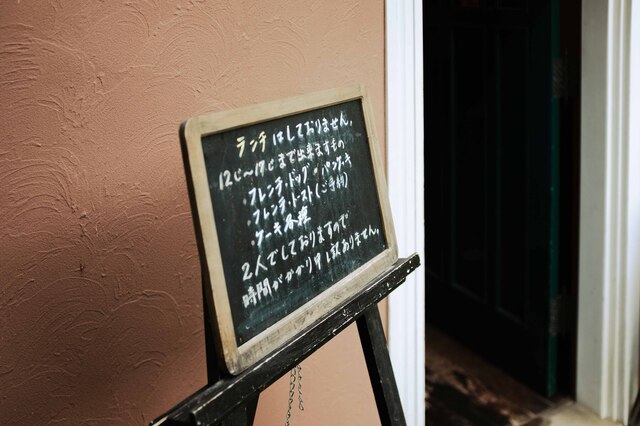 ランチはしておりません。
12じ〜17じまで出来ますもの
・フレンチ・ドッグ ・パンケーキ
・フレンチ・トースト(ご予約)
・ケーキ各種
2人でしておりますので
時間がかかり申し訳ありません。